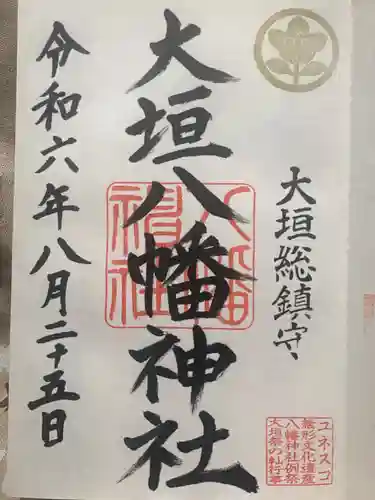 大垣総鎮守
大垣八幡神社
八幡神社
令和六年八月二十五日
ユネスコ
無形文化遺産
八幡神社例祭
大垣祭の軕行事